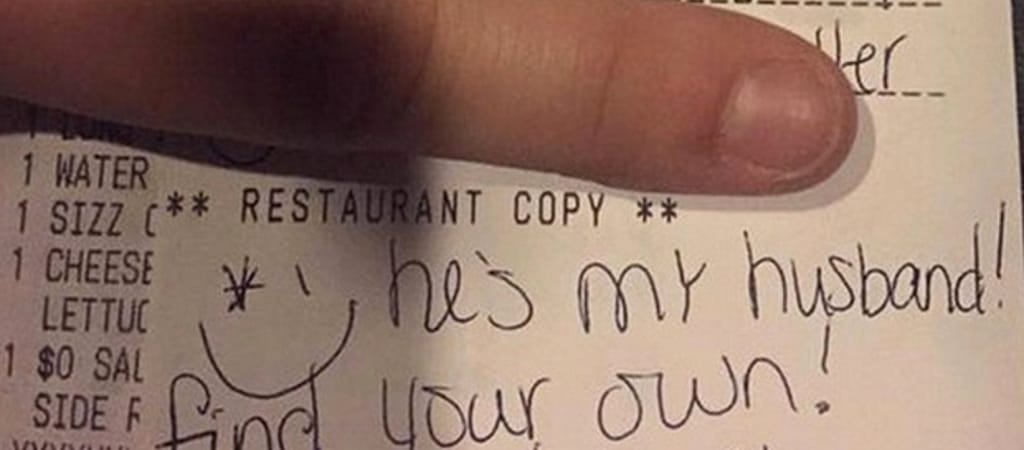 1 WATER
1 SIZZ
1 CHEESE
LETTUC
1 $0 SAL
SIDE
** RESTAURANT COPY **
he's my husband!
find your own!